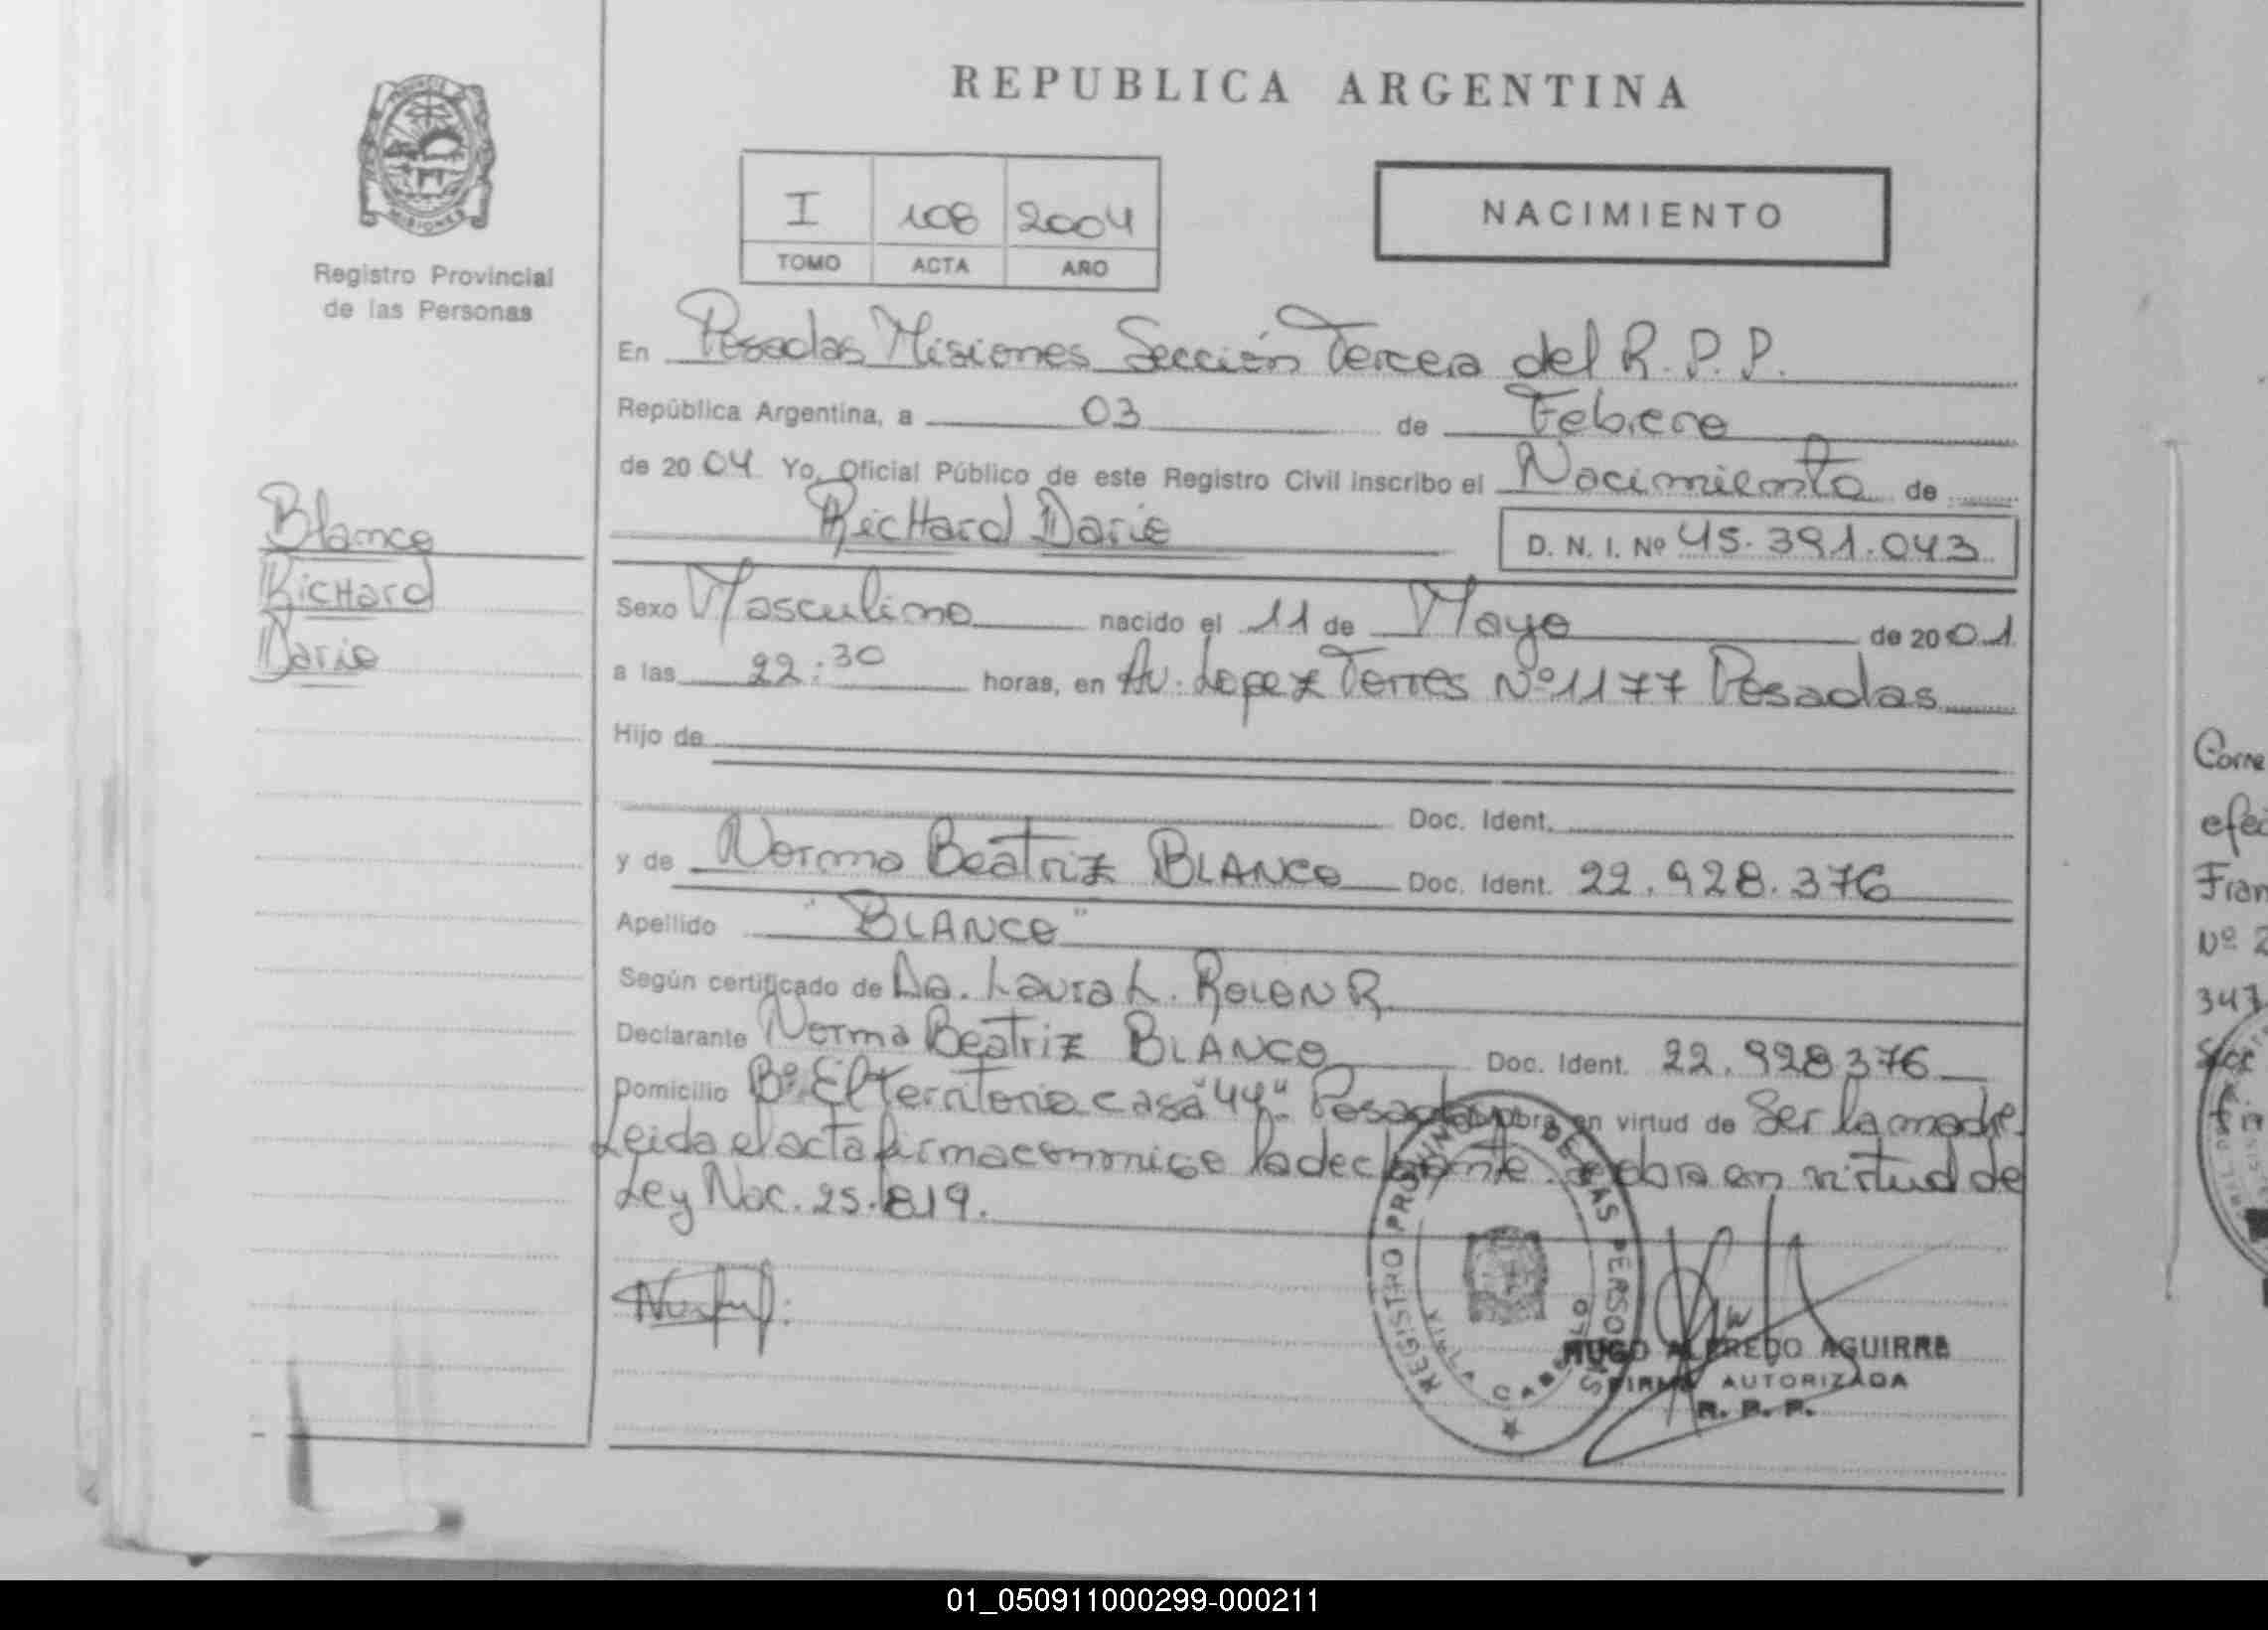 REPUBLICA ARGENTINA
PROVINCIA
MISIONES
Registro Provincial
de las Personas
I 108 2004
TOMO ACTA AÑO
NACIMIENTO
En Posadas Misiones Sección Tercera del R.P.P.
República Argentina, a 03 de Febrero
de 2004 Yo, Oficial Público de este Registro Civil inscribo el Nacimiento de
RicHard Dario D. N. I. Nº 45.391.043
Blanco
RicHard
Dario
Sexo Masculino nacido el 11 de Mayo de 2001
a las 22:30 horas, en Av. Lopez Torres Nº 1177 Posadas
Hijo de
Doc. Ident.
y de Norma Beatriz BLANCO Doc. Ident. 22.928.376
Apellido "BLANCO"
Según certificado de Da. Laura L. ROLON R.
Declarante Norma Beatriz BLANCO Doc. Ident. 22.928376
Domicilio Bº El territorio casa "44" Posadas obra en virtud de Ser la madre
Leida el acta firma conmigo la declarante. Se obra en virtud de
Ley Nac. 25.819.
REGISTRO PROVINCIAL DE LAS PERSONAS
VILLA CABELLO
HUGO ALFREDO AGUIRRE
FIRMA AUTORIZADA
R. P. P.
Corre
efec
Fran
Nº 2
347
01_050911000299-000211